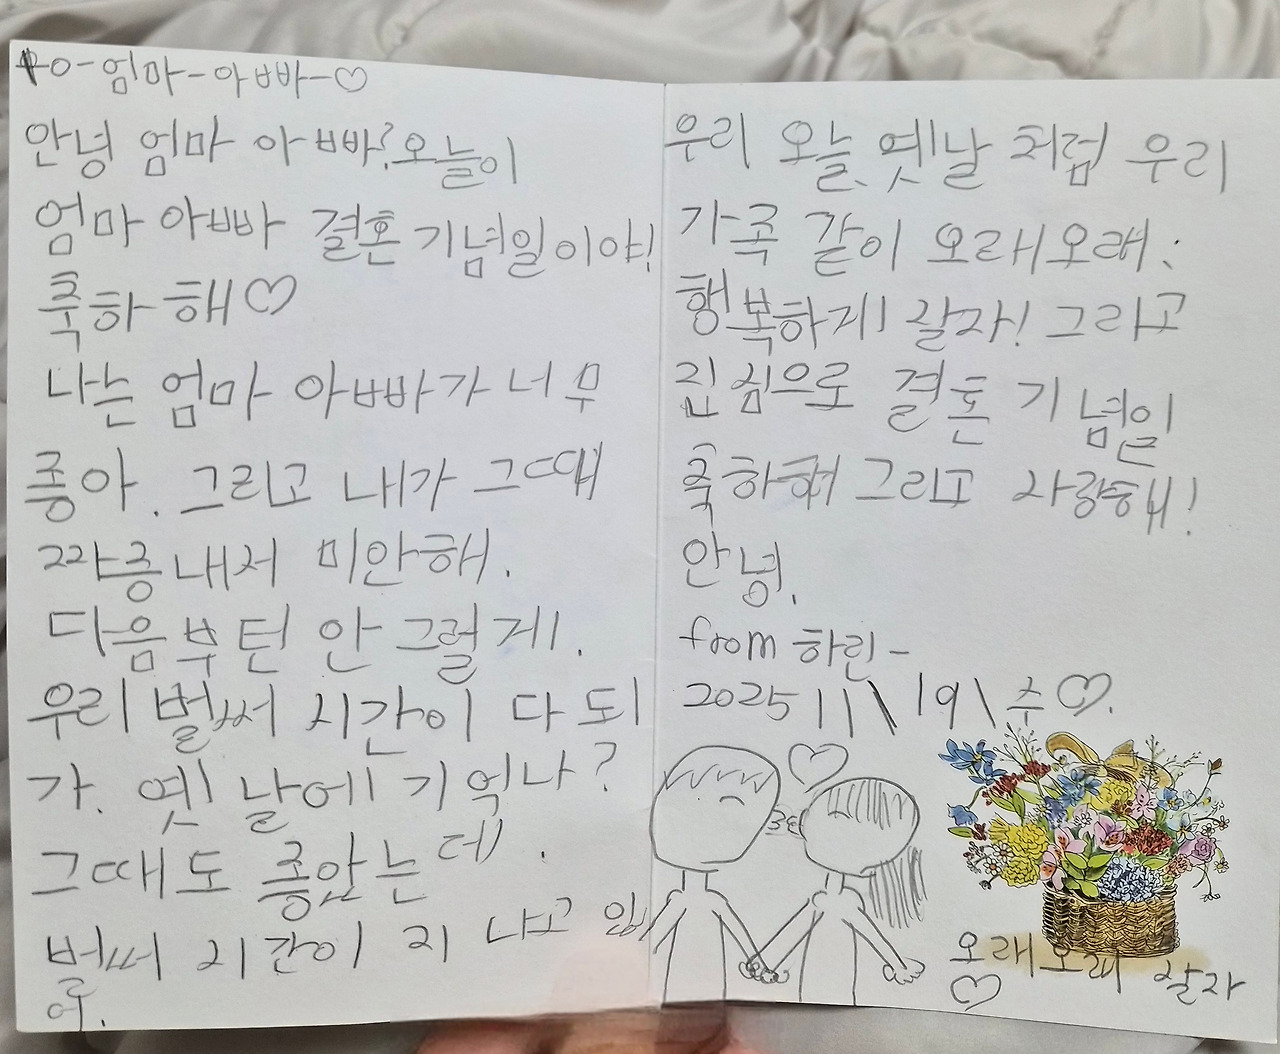 to-엄마-아빠-♡
안녕 엄마 아빠? 오늘이
엄마 아빠 결혼기념일이야!
축하해♡
나는 엄마 아빠가 너무
좋아. 그리고 내가 그때
짜증내서 미안해.
다음부턴 안 그럴게.
우리 벌써 시간이 다 되
가. 옛날에 기억나?
그때도 좋았는데.
벌써 시간이 지나고 있
어.
우리 오늘, 옛날처럼 우리
가족 같이 오래오래
행복하게 살자! 그리고
진심으로 결혼기념일
축하해 그리고 사랑해!
안녕.
from 하린-
2025\11\19\수♡.
오래오래 살자
♡